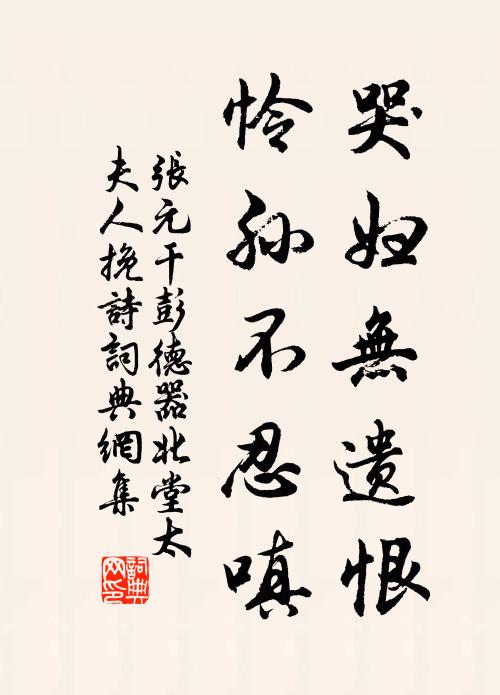 哭妇無遗恨
怜孙不忍嗔
張元干彭德器北堂太
夫人挽詩詞典網集
詞典
网印